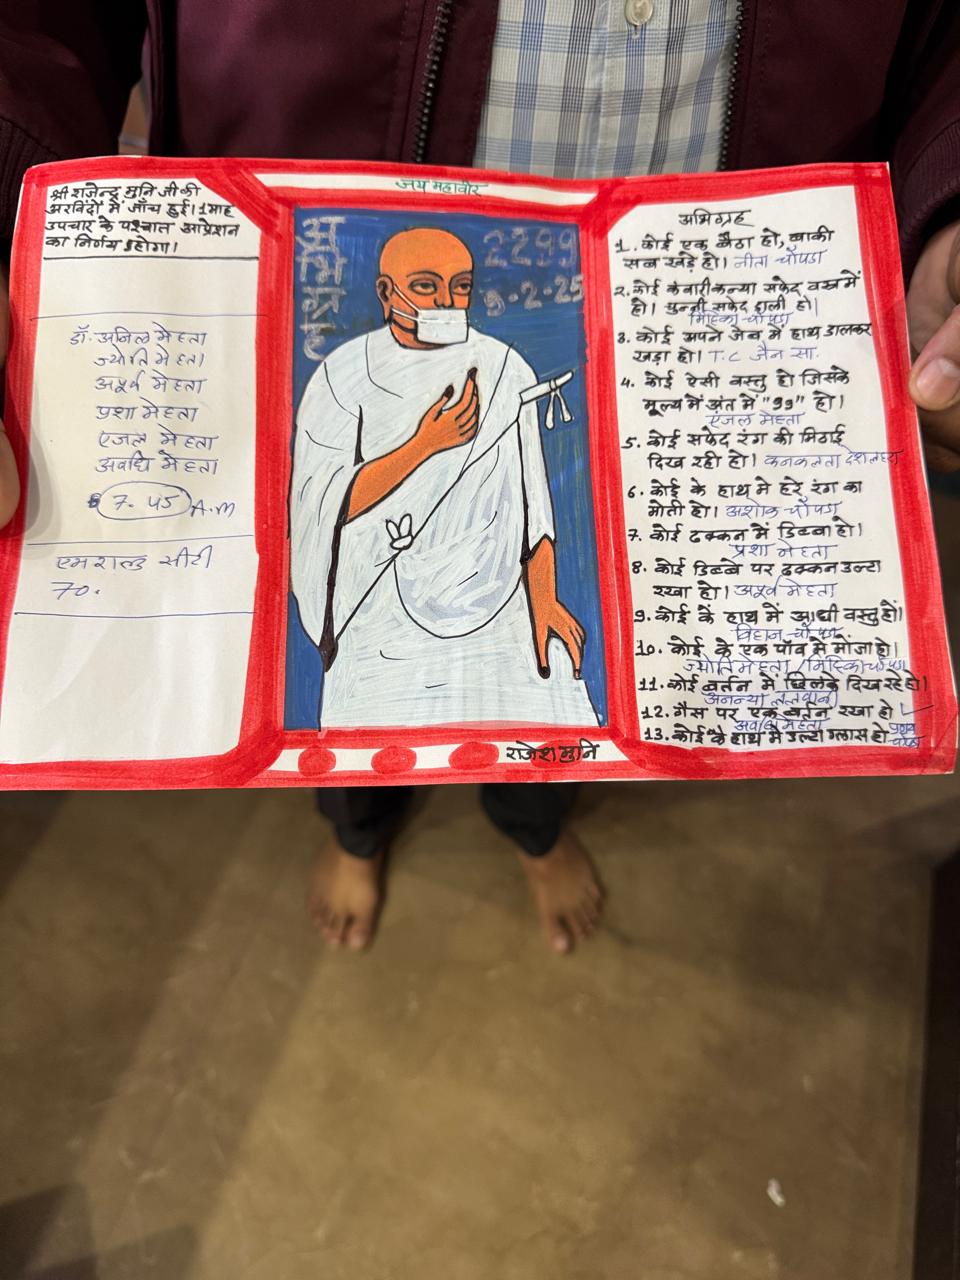 जय महावीर
श्री राजेन्द्र मुनि जी की
अरविंदो में जाँच हुई। 1 माह
उपचार के पश्चात आप्रेशन
का निर्णय होगा।
डॉ. अनिल मेहता
ज्योति मेहता
अपूर्व मेहता
प्रशा मेहता
एंजल मेहता
अवधि मेहता
7.45 A.M
एमराल्ड सीटी
70.
अभिग्रह
2299
9.2.25
राजेश मुनि
अभिग्रह
1. कोई एक बैठा हो, बाकी
सब खड़े हो। नीता चौपडा
2. कोई कंवारी कन्या सफेद वस्त्र में
हो। चुन्नी सफेद डाली हो।
मिष्टिका चौपडा
3. कोई अपने जेब में हाथ डालकर
खड़ा हो। T.C जैन सा.
4. कोई ऐसी वस्तु हो जिसके
मूल्य में अंत में "99" हो।
एंजल मेहता
5. कोई सफेद रंग की मिठाई
दिख रही हो। कनकलता देशलहरा
6. कोई के हाथ मे हरे रंग का
मोती हो। अशोक चौपडा
7. कोई ढक्कन में डिब्बा हो।
प्रशा मेहता
8. कोई डिब्बे पर ढक्कन उल्टा
रखा हो। अपूर्व मेहता
9. कोई के हाथ में आधी वस्तु हों।
विहान चौपडा
10. कोई के एक पाँव में मोजा हो।
ज्योति मेहता / मिष्टिका चौपडा
11. कोई बर्तन में छिलके दिख रहे हो।
अनन्या ललवानी
12. गैस पर एक बर्तन रखा हो।
अवधि मेहता
13. कोई के हाथ में उल्टा ग्लास हो
चौपडा